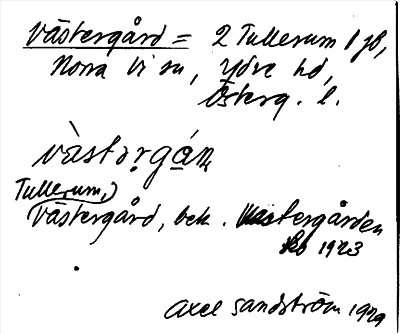 Västergård = 2 Tullerum 1 gd,
Norra Vi sn, Ydre hd,
Österg. l.
vàstərgán
Tullerum,
Västergård, bek. Västergården
1923
Axel Sandström 1929